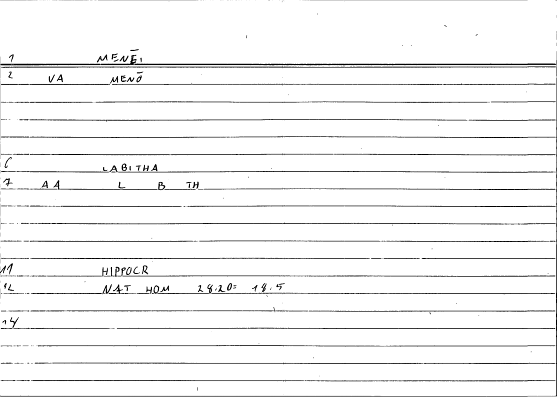 1 MENĒI
2 VA MENŌ
6 LABITHA
7 AA L B TH
11 HIPPOCR
12 NAT HOM 28.20= 18.5
14